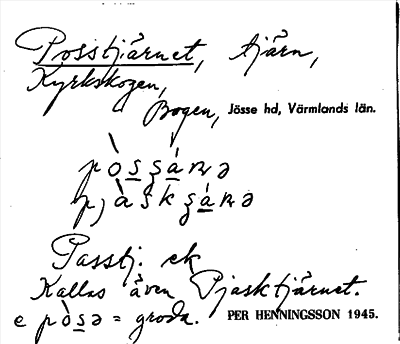 Posstjärnet, tjärn,
Kyrkskogen,
Bogen, Jösse hd, Värmlands län.
pòs̲ʂá̲ɴə
pjàskʂá̲ɴə
Passtj. ek
Kallas även Pjasktjärnet.
e pòs̲ə = groda. PER HENNINGSSON 1945.